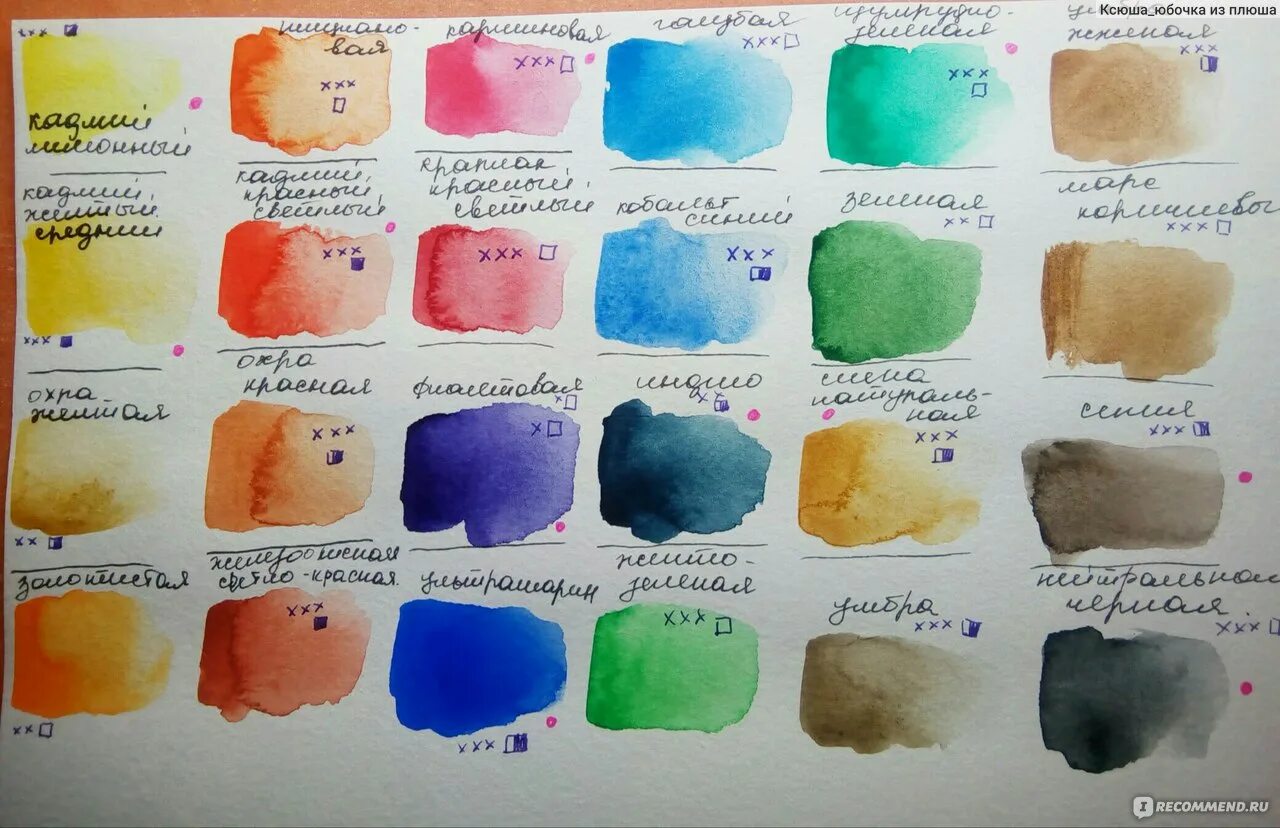 Ксюша_юбочка из плюша
кадмий
лимонный
титано-
вая
карминовая
голубая
изумрудно-
зеленая
жженая
кадмий
желтый
средний
кадмий
красный
светлый
краплак
красный
светлый
кобальт
синий
зеленая
марс
коричневы
охра
желтая
охра
красная
фиолетовая
индиго
сиена
натураль-
ная
сепия
золотистая
железоокисная
светло-красная
ультрамарин
желто-
зеленая
умбра
нейтральная
черная
IRECOMMEND.RU